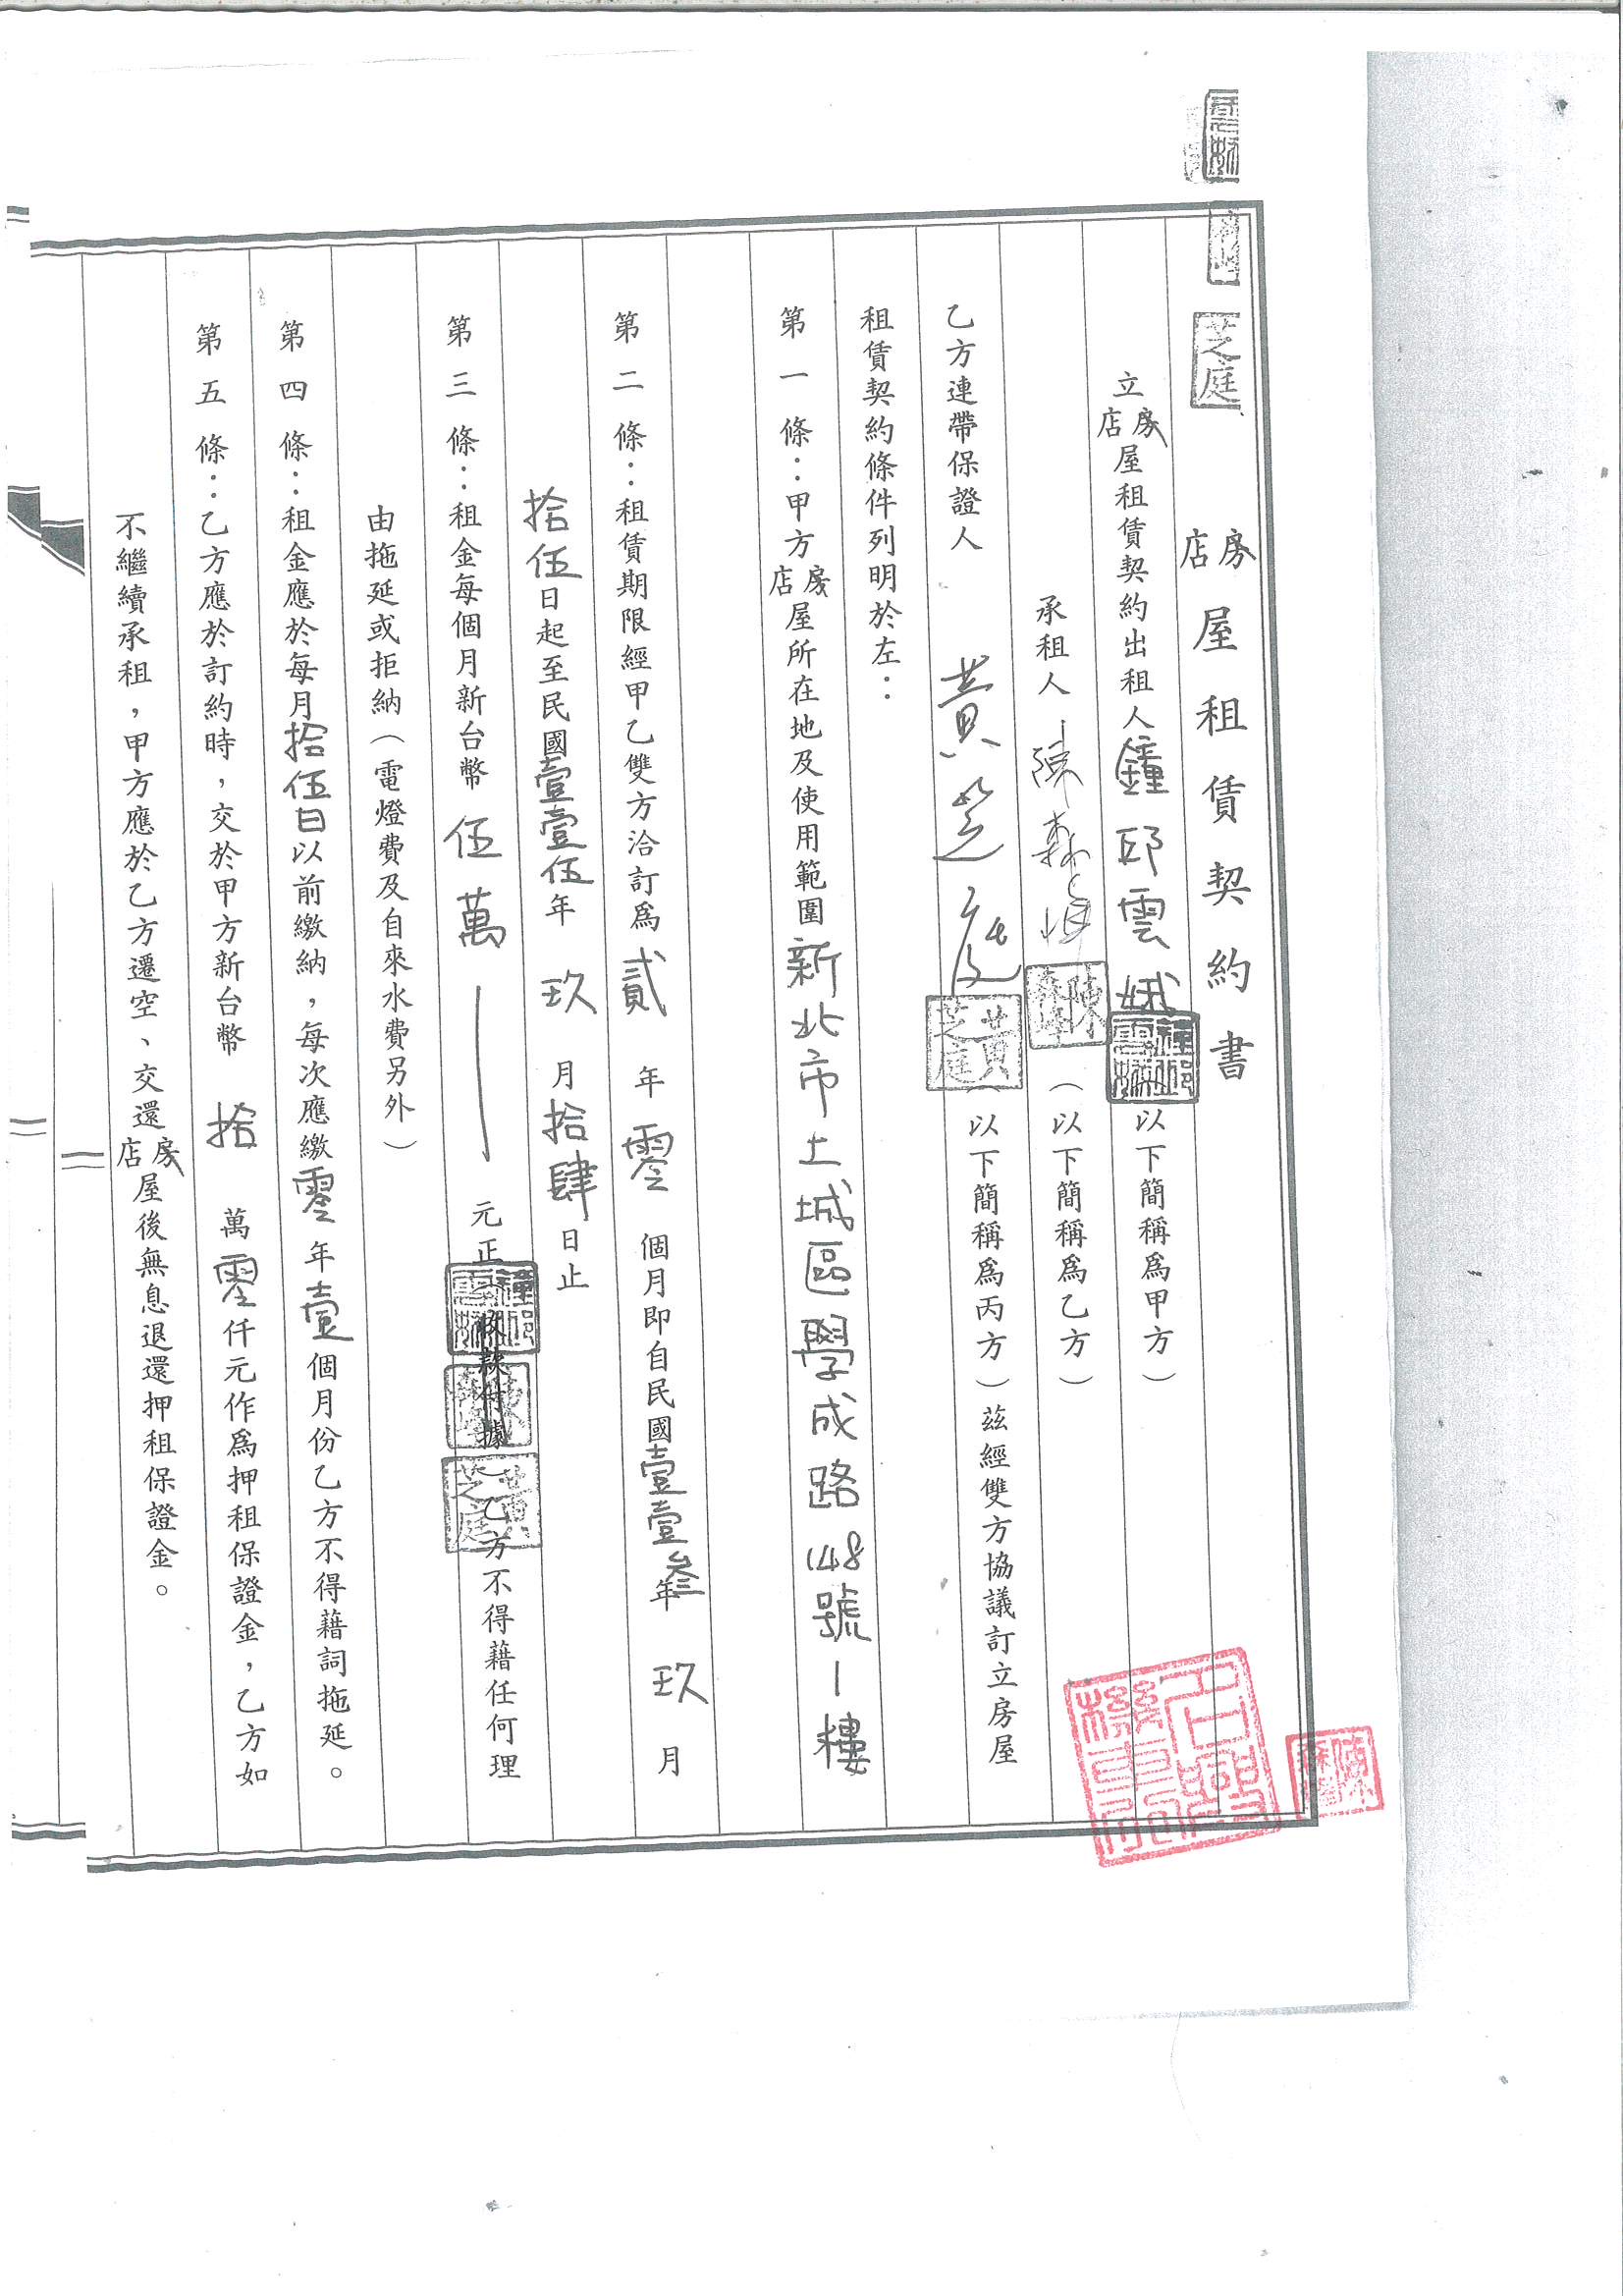 芝庭
店房屋租賃契約書
立店房屋租賃契約出租人鐘邱雲娥(以下簡稱為甲方)
承租人陳(以下簡稱為乙方)
乙方連帶保證人 黄芝庭(以下簡稱為丙方)茲經雙方協議訂立房屋
黃芝庭
租賃契約條件列明於左:
第一條:甲方店房屋所在地及使用範圍新北市土城區學成路148號一樓
第二條:租賃期限經甲乙雙方洽訂為貳年零個月即自民國壹壹叁年玖月
拾伍日起至民國壹壹伍年玖月拾肆日止
第三條:租金每個月新台幣伍萬—元正(收款付據)乙方不得藉任何理
黃芝庭
由拖延或拒納(電燈費及自來水費另外)
第四條:租金應於每月拾伍日以前繳納,每次應繳零年壹個月份乙方不得藉詞拖延。
第五條:乙方應於訂約時,交於甲方新台幣拾萬零仟元作為押租保證金,乙方如
不繼續承租,甲方應於乙方遷空、交還店房屋後無息退還押租保證金。